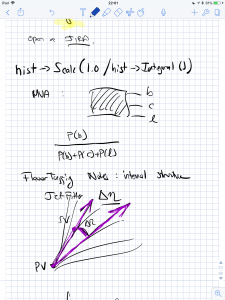 22:01
open a JIRA.
hist → Scale (1.0 / hist → Integral ())
DNA :
b
c
l
P(b)
P(b)+P(c)+P(l)
Flavor Tagging Notes : internal structure
Jet Fitter Δη
ΔR
PV